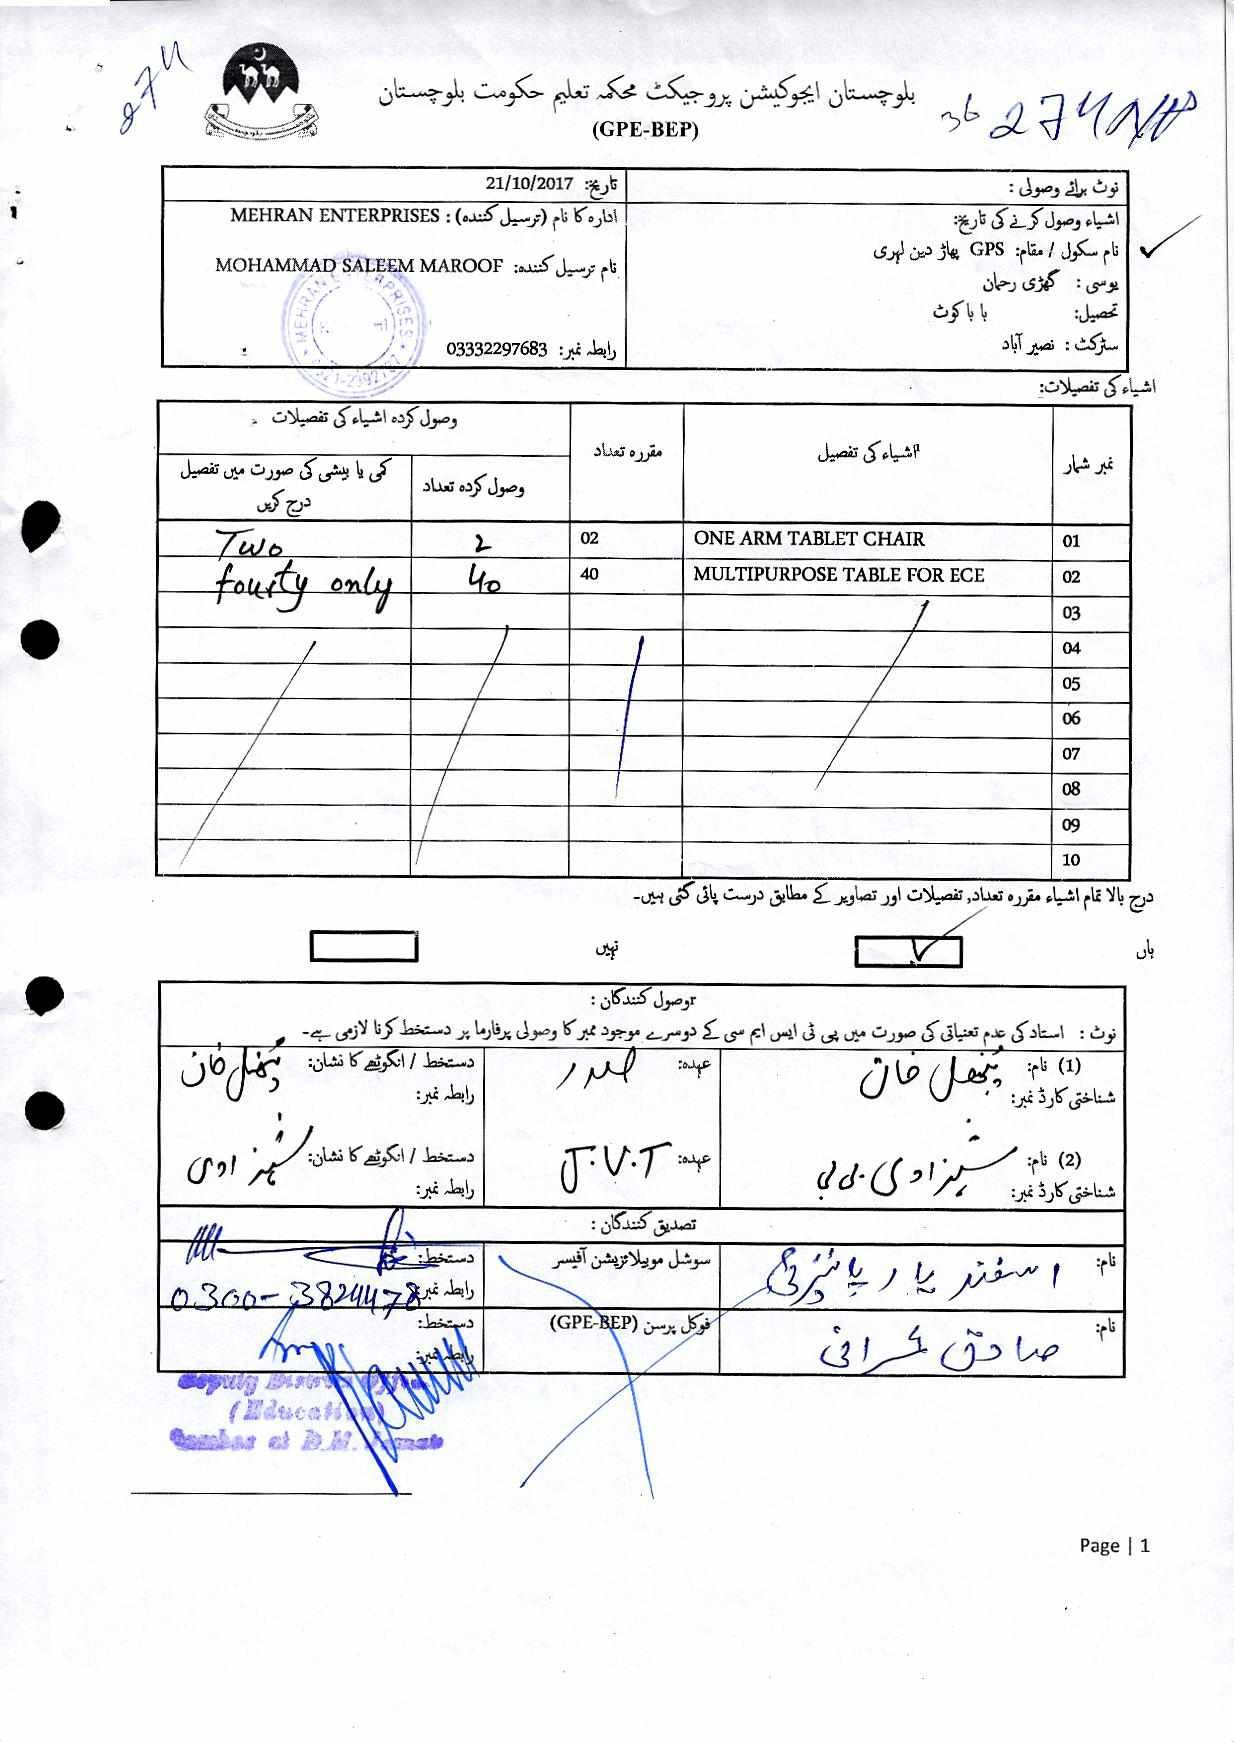 274
بلوچستان ایجوکیشن پروجیکٹ محکمہ تعلیم حکومت بلوچستان
(GPE-BEP)
36 274
نوٹ برائے وصولی :
تاریخ: 21/10/2017
اشیاء وصول کرنے کی تاریخ:
نام سکول / مقام: GPS پھاڑ دین لہری
یوسی : گھڑی رحمان
تحصیل: بابا کوٹ
سٹرکٹ : نصیر آباد
ادارہ کا نام (ترسیل کنندہ) : MEHRAN ENTERPRISES
نام ترسیل کنندہ: MOHAMMAD SALEEM MAROOF
رابطہ نمبر: 03332297683
MEHRAN ENTERPRISES
اشیاء کی تفصیلات:
نمبر شمار اشیاء کی تفصیل مقررہ تعداد وصول کردہ اشیاء کی تفصیلات
وصول کردہ تعداد کمی یا بیشی کی صورت میں تفصیل درج کریں
01 ONE ARM TABLET CHAIR 02 2 Two
02 MULTIPURPOSE TABLE FOR ECE 40 40 fourty only
03
04
05
06
07
08
09
10
درج بالا تمام اشیاء مقررہ تعداد, تفصیلات اور تصاویر کے مطابق درست پائی گئی ہیں۔
ہاں نہیں
وصول کنندگان :
نوٹ : استاد کی عدم تعنیاتی کی صورت میں پی ٹی ایس ایم سی کے دوسرے موجود ممبر کا وصولی پرفارما پر دستخط کرنا لازمی ہے۔
(1) نام: پنھل خان عہدہ: صدر دستخط / انگوٹھے کا نشان: پنھل خان
شناختی کارڈ نمبر: رابطہ نمبر:
(2) نام: شہزادی بی بی عہدہ: J.V.T دستخط / انگوٹھے کا نشان: شہزادی
شناختی کارڈ نمبر: رابطہ نمبر:
تصدیق کنندگان :
نام: اسفند یار سوشل موبیلائزیشن آفیسر دستخط:
رابطہ نمبر: 0300-3824478
نام: صادق عمرانی فوکل پرسن (GPE-BEP) دستخط:
رابطہ نمبر:
Deputy District
(Education)
at D.M. Jamali
Page | 1